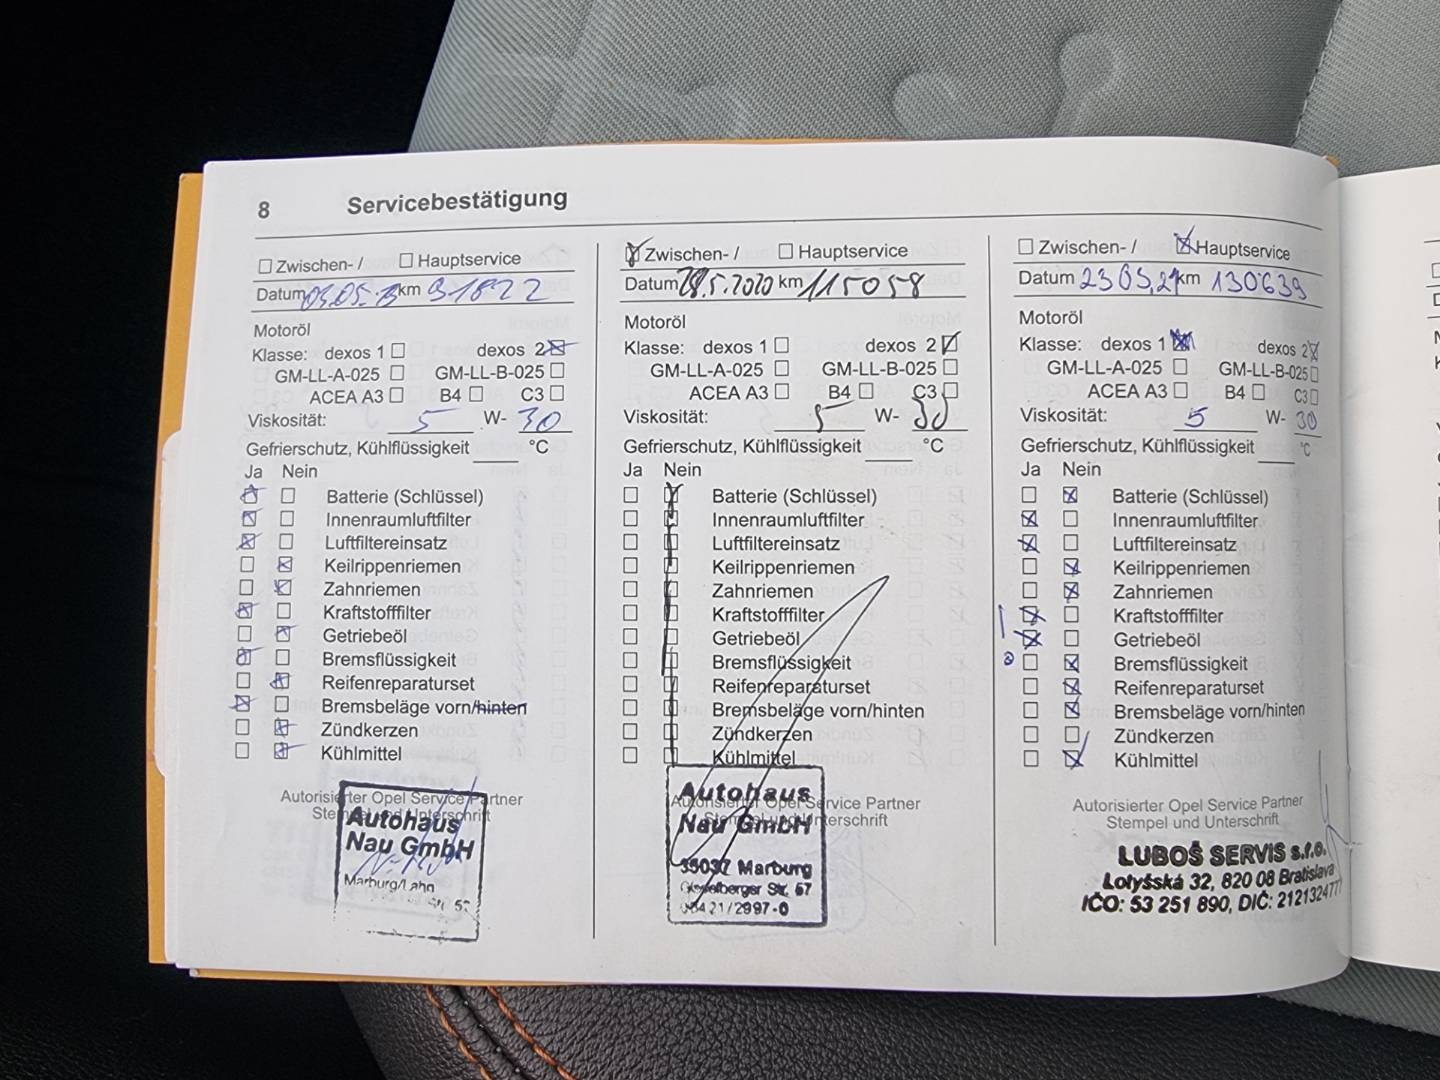 8 Servicebestätigung
Zwischen- / Hauptservice
Datum 03.05. km 91822
Motoröl
Klasse: dexos 1 dexos 2
GM-LL-A-025 GM-LL-B-025
ACEA A3 B4 C3
Viskosität: 5 W- 30
Gefrierschutz, Kühlflüssigkeit °C
Ja Nein
Batterie (Schlüssel)
Innenraumluftfilter
Luftfiltereinsatz
Keilrippenriemen
Zahnriemen
Kraftstofffilter
Getriebeöl
Bremsflüssigkeit
Reifenreparaturset
Bremsbeläge vorn/hinten
Zündkerzen
Kühlmittel
Autorisierter Opel Service Partner
Stempel und Unterschrift
Autohaus
Nau GmbH
Marburg/Lahn
57
Zwischen- / Hauptservice
Datum 28.5.2020 km 115058
Motoröl
Klasse: dexos 1 dexos 2
GM-LL-A-025 GM-LL-B-025
ACEA A3 B4 C3
Viskosität: 5 W- 30
Gefrierschutz, Kühlflüssigkeit °C
Ja Nein
Batterie (Schlüssel)
Innenraumluftfilter
Luftfiltereinsatz
Keilrippenriemen
Zahnriemen
Kraftstofffilter
Getriebeöl
Bremsflüssigkeit
Reifenreparaturset
Bremsbeläge vorn/hinten
Zündkerzen
Kühlmittel
Autorisierter Opel Service Partner
Stempel und Unterschrift
Autohaus
Nau GmbH
35037 Marburg
Str. 57
06421/2997-0
Zwischen- / Hauptservice
Datum 23 03,21 km 130639
Motoröl
Klasse: dexos 1 dexos 2
GM-LL-A-025 GM-LL-B-025
ACEA A3 B4 C3
Viskosität: 5 W- 30
Gefrierschutz, Kühlflüssigkeit °C
Ja Nein
Batterie (Schlüssel)
Innenraumluftfilter
Luftfiltereinsatz
Keilrippenriemen
Zahnriemen
Kraftstofffilter
Getriebeöl
Bremsflüssigkeit
Reifenreparaturset
Bremsbeläge vorn/hinten
Zündkerzen
Kühlmittel
Autorisierter Opel Service Partner
Stempel und Unterschrift
LUBOŠ SERVIS s.r.o.
Lotyšská 32, 820 08 Bratislava
IČO: 53 251 890, DIČ: 2121324777